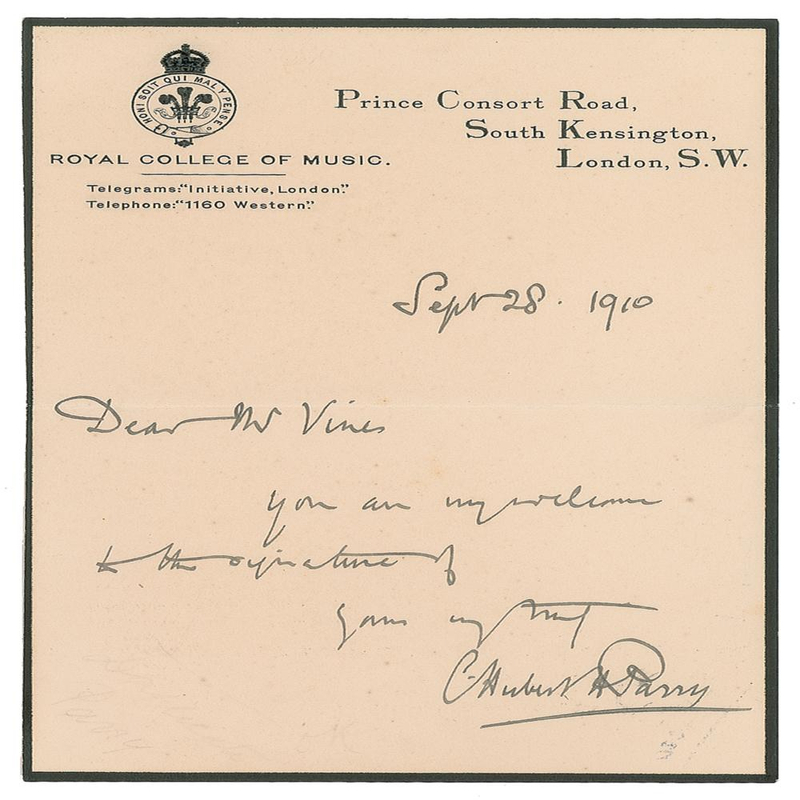 HONI SOIT QUI MAL Y PENSE
ROYAL COLLEGE OF MUSIC.
Telegrams: "Initiative, London."
Telephone: "1160 Western."
Prince Consort Road,
South Kensington,
London, S.W.
Sept 28. 1910
Dear Mr Vines
you are very welcome
to the signature of
yours very truly
C. Hubert H Parry